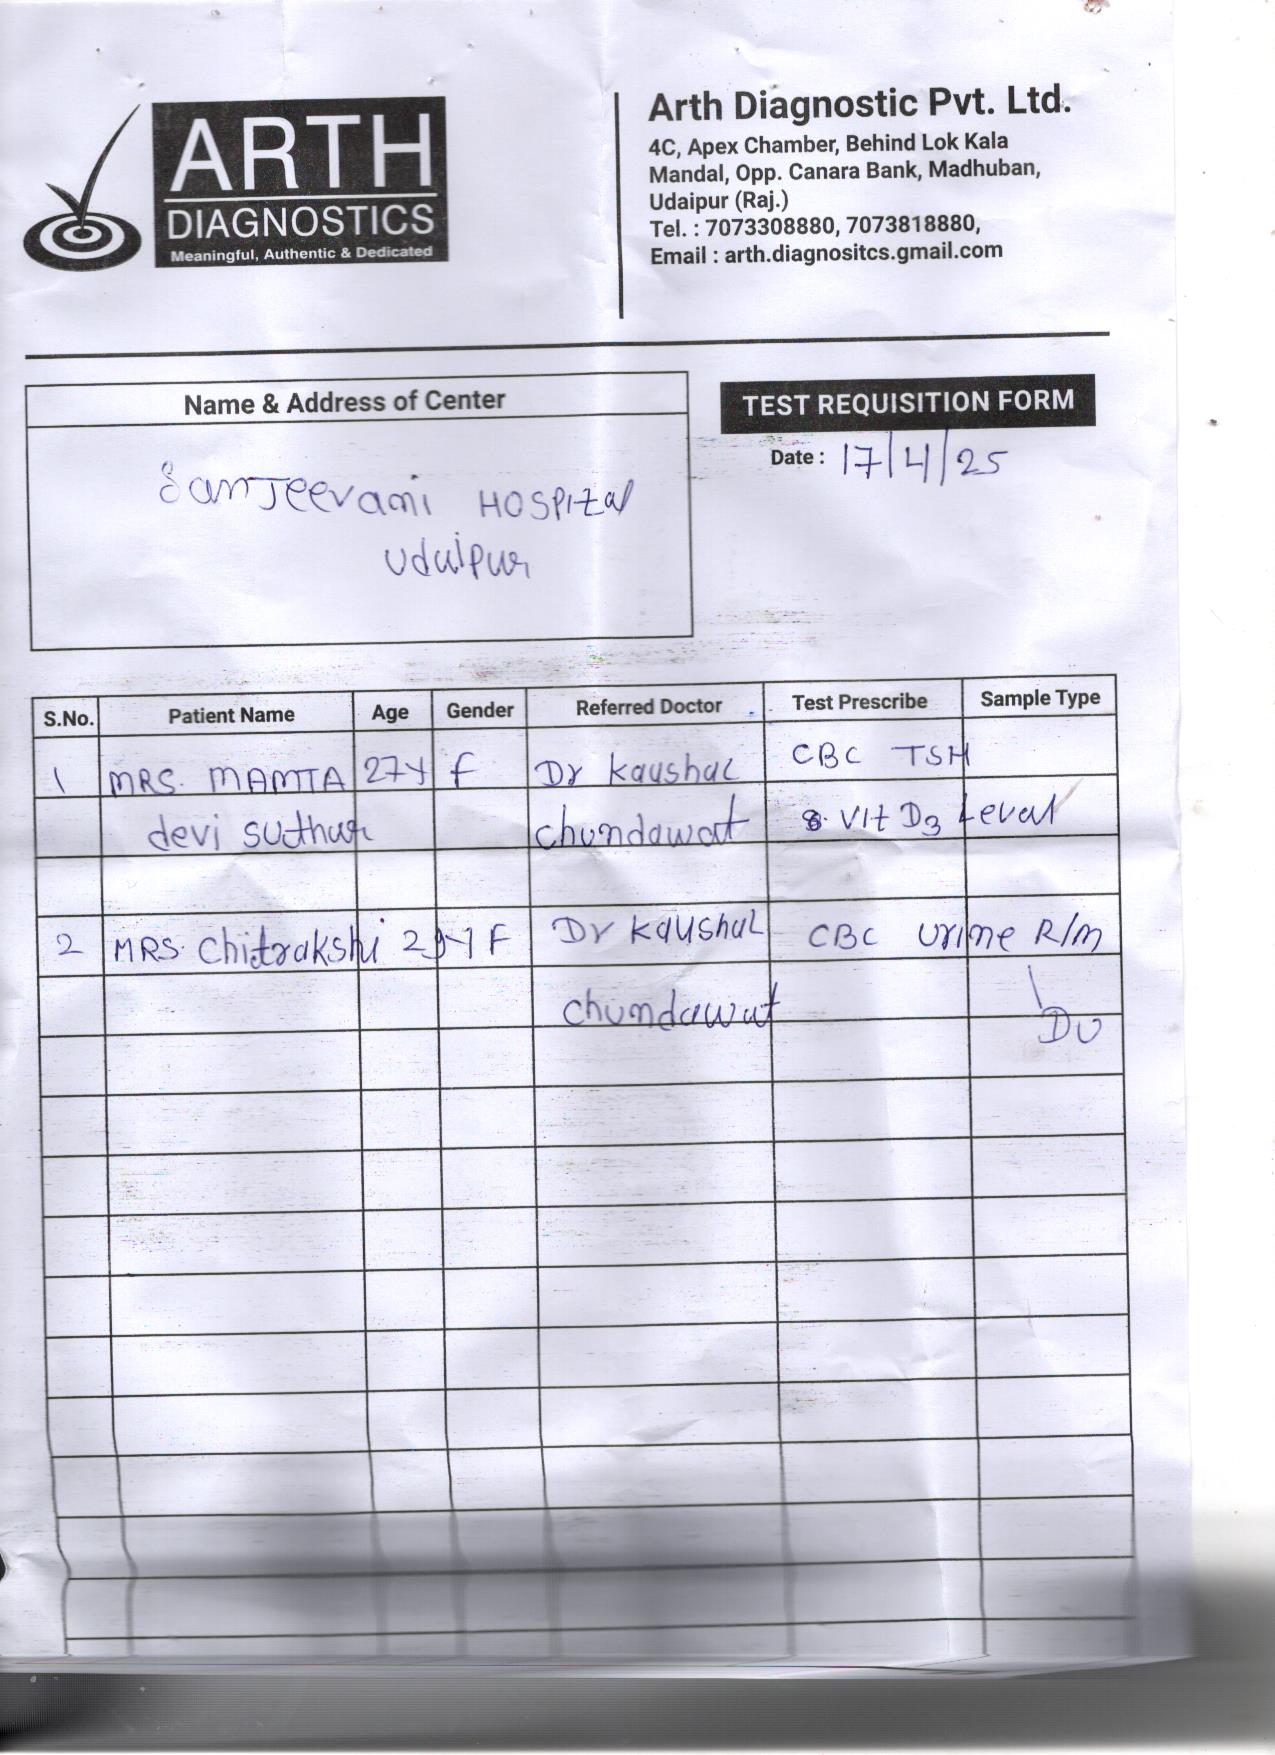 ARTH
DIAGNOSTICS
Meaningful, Authentic & Dedicated
Arth Diagnostic Pvt. Ltd.
4C, Apex Chamber, Behind Lok Kala
Mandal, Opp. Canara Bank, Madhuban,
Udaipur (Raj.)
Tel. : 7073308880, 7073818880,
Email : arth.diagnositcs.gmail.com
Name & Address of Center
SanJeevani HOSPItal
Udaipur
TEST REQUISITION FORM
Date : 17/4/25
S.No. Patient Name Age Gender Referred Doctor Test Prescribe Sample Type
1 MRS. MAMTA 27y F Dr Kaushal CBC TSH
devi suthar chundawat Vit D3 Level
2 MRS. Chitrakshi F Dr Kaushal CBC Urine R/M
chundawat